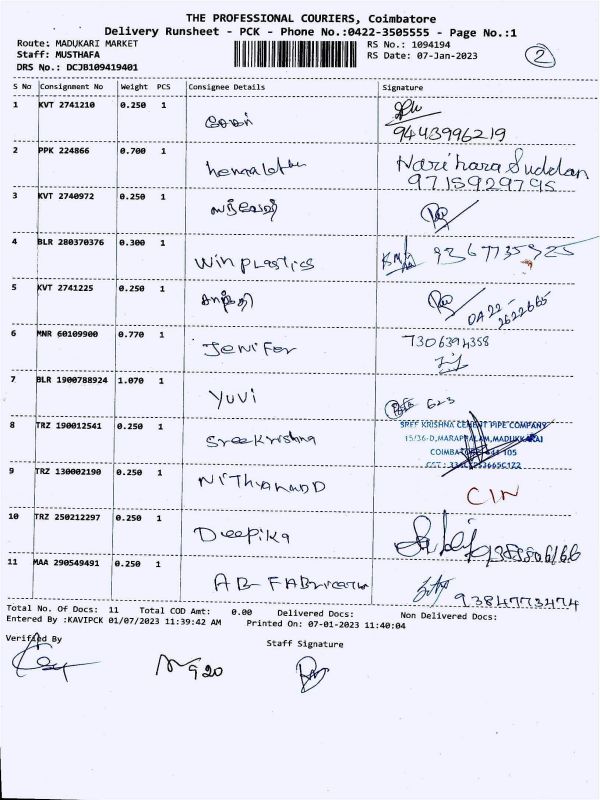 THE PROFESSIONAL COURIERS, Coimbatore
Delivery Runsheet - PCK - Phone No.:0422-3505555 - Page No.:1
Route: MADUKARI MARKET RS No.: 1094194
Staff: MUSTHAFA RS Date: 07-Jan-2023 2
DRS No.: DCJB109419401
S No Consignment No Weight PCS Consignee Details Signature
1 KVT 2741210 0.250 1
9443996219
2 PPK 224866 0.700 1 Harihara Suddan
9715929795
3 KVT 2740972 0.250 1
4 BLR 280370376 0.300 1 Win Plastics
5 KVT 2741225 0.250 1
6 MNR 60109900 0.770 1 Jenifer 7306394358
7 BLR 1900788924 1.070 1 Yuvi 623
8 TRZ 190012541 0.250 1 Sreekrishna SREE KRISHNA CEMENT PIPE COMPANY
15/36-D, MARAPALAM, MADUKKARAI
COIMBATORE 641 105
9 TRZ 130002190 0.250 1 NITHYANAND
10 TRZ 250212297 0.250 1 Deepika
11 MAA 290549491 0.250 1 AB-FABrication 9384773474
Total No. Of Docs: 11 Total COD Amt: 0.00 Delivered Docs: Non Delivered Docs:
Entered By :KAVIPCK 01/07/2023 11:39:42 AM Printed On: 07-01-2023 11:40:04
Verified By Staff Signature
920